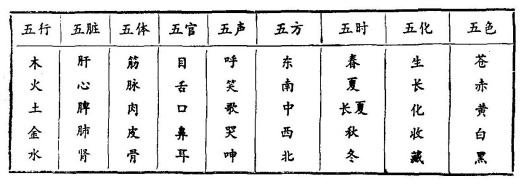 五行 五脏 五体 五官 五声 五方 五时 五化 五色
木 肝 筋 目 呼 东 春 生 苍
火 心 脉 舌 笑 南 夏 长 赤
土 脾 肉 口 歌 中 长夏 化 黄
金 肺 皮 鼻 哭 西 秋 收 白
水 肾 骨 耳 呻 北 冬 藏 黑